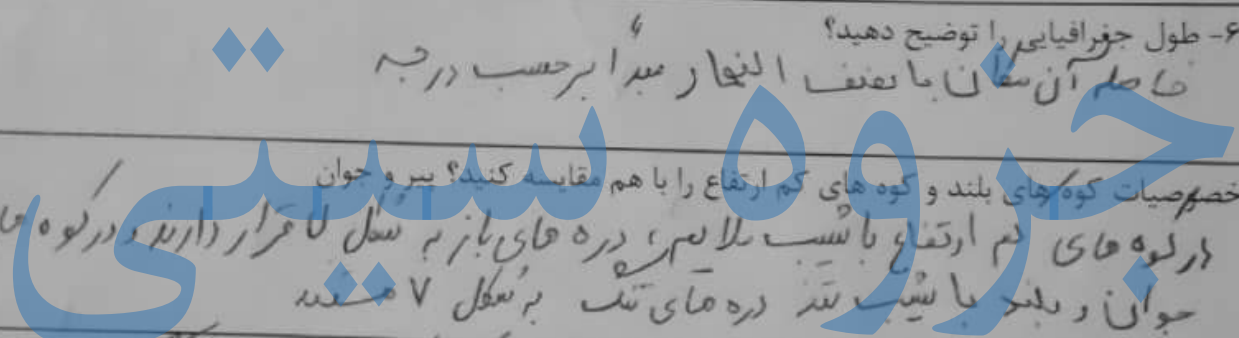 ۶- طول جغرافیایی را توضیح دهید؟
فاصله آن مکان با نصف النهار مبدأ برحسب درجه
خصوصیات کوه های بلند و کوه های کم ارتفاع را با هم مقایسه کنید؟ پیر و جوان
در کوه های کم ارتفاع با شیب ملایم، دره های باز به شکل U قرار دارند و در کوه ها
جوان و بلند با شیب تند دره های تنگ به شکل ۷ هستند
جزوه سیتی